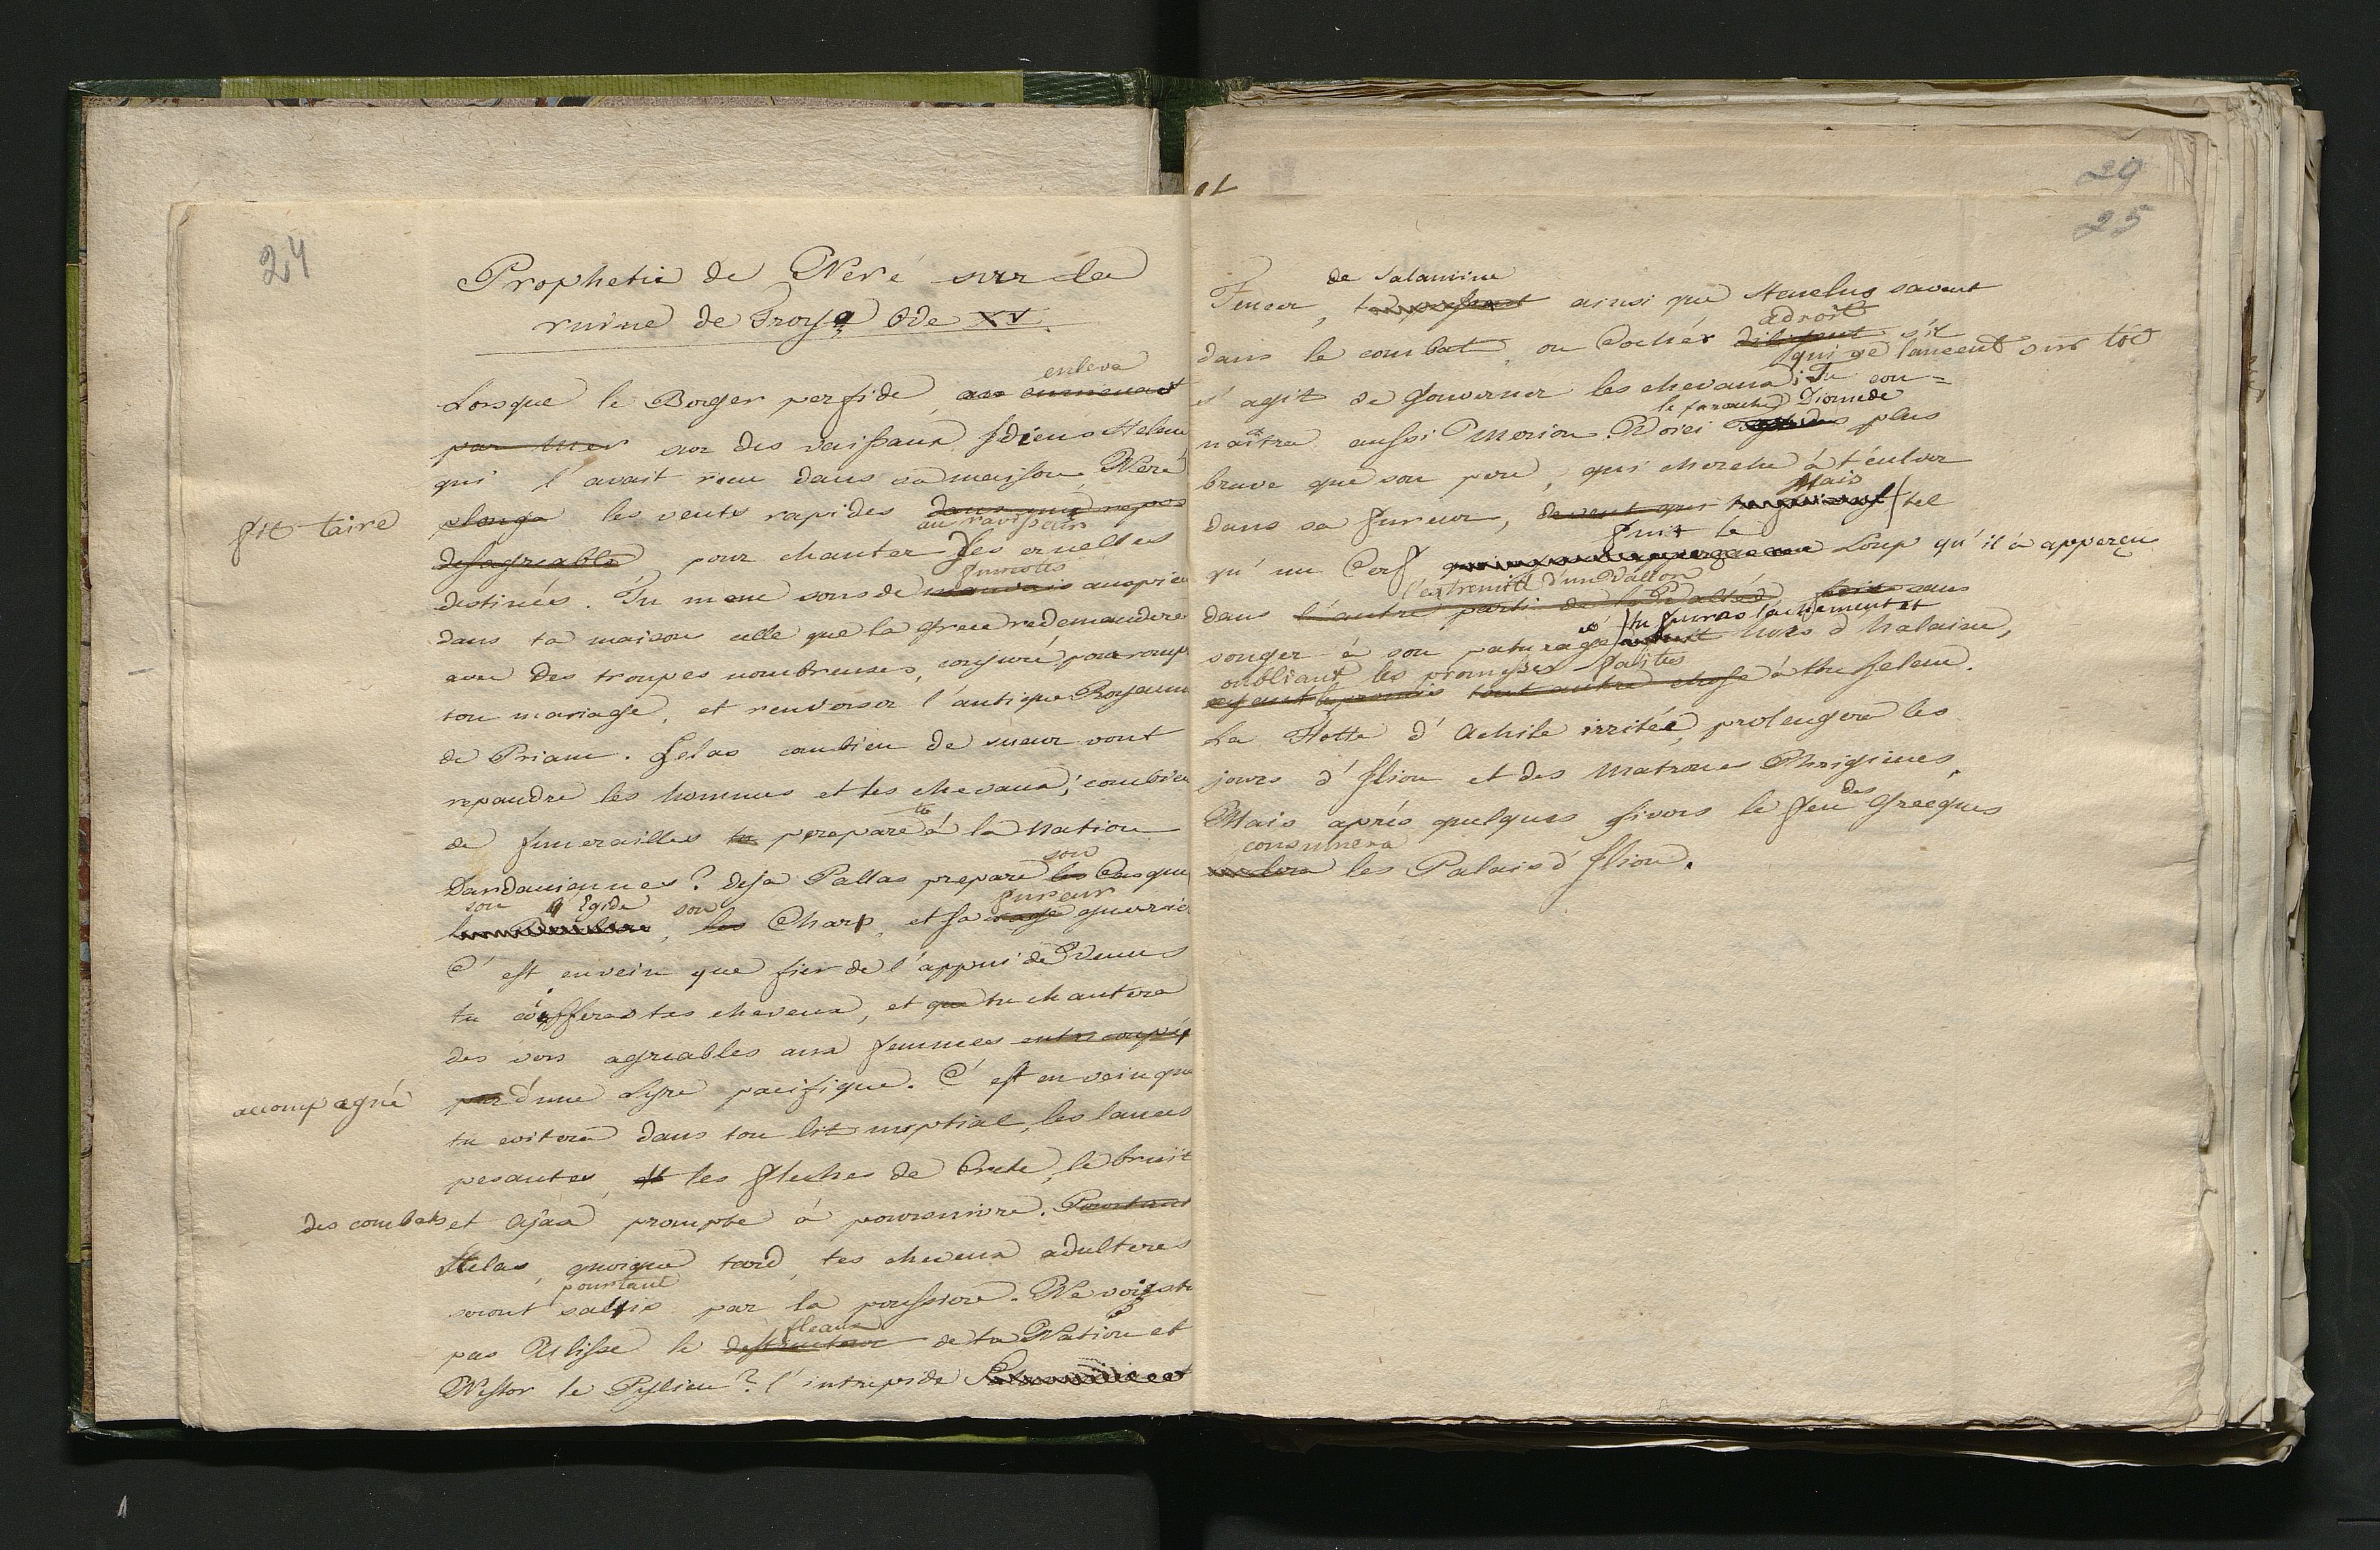 24
Prophetie de Neré sur la
ruine de Troye Ode XV.
enleva
Lorsque le Berger perfide, emmenant
par Mer sur des vaissaux Idiens Helene
qui l'avait reçu dans sa maison, Neré
fit taire
plonga les vents rapides dans un repos
au ravisseur
desagreable pour chanter les cruelles
funestes
destinées. Tu mene sous de mauvais auspices
dans ta maison celle que la Grece redemandera
avec des troupes nombreuses, conjuré pour rompre
ton mariage, et renverser l'antique Royaume
de Priam. Helas combien de sueur vont
repandre les hommes et les chevaux, combien
de funerailles tu prepare à la Nation
son
Dardaniennes? deja Pallas prepare les Casque
son Egide son fureur
Charp, et sa rage guerrie
C'est en vein que fier de l'appui de Venus
tu coifferas tes cheveux, et que tu chantera
des vers agreables aux femmes entrecoupé
accompagné
par d'une Lyre pacifique. C'est en vein que
tu evitera dans ton lit nuptial, les lances
pesantes, et les fleches de Crete, le bruit
des combats et Ajax prompte à poursuivre. Pourtant
Helas, quoique tard, tes cheveux adulteres
pourtant
seront salis par la poussiere. Ne vois tu
fleaux
pas Ulisse le destructeur de ta Nation et
Nestor le Pylien? l'intrepide
et
29
25
de Salamine
Teucer, ainsi que Stenelus savent
adroit
dans le combat, ou Cocher diligent s'il
qui se lancent sur toi
s'agit de gouverner les chevaux; Tu con=
le farouche Diomede
naitra aussi Merion. Voici plus
brave que son pere, qui cherche à t'enlver
Mais
dans sa fureur, devant qui tel
fuit le
qu'un Cerf Loup qu'il a apperçu
l'extremité d'un Vallon
dans l'autre parti de la sans
tu fuiras lachement et
songer à son paturage hors d'halaine,
oubliant les promesses faites
ayant promis tout autre chose à thu helene.
La Flotte d'Achile irritée, prolengera les
jours d'Ilion et des Matrones Phrigienes,
des
Mais aprés quelques hivers le feu Grecques
consumera
les Palais d'Ilion.